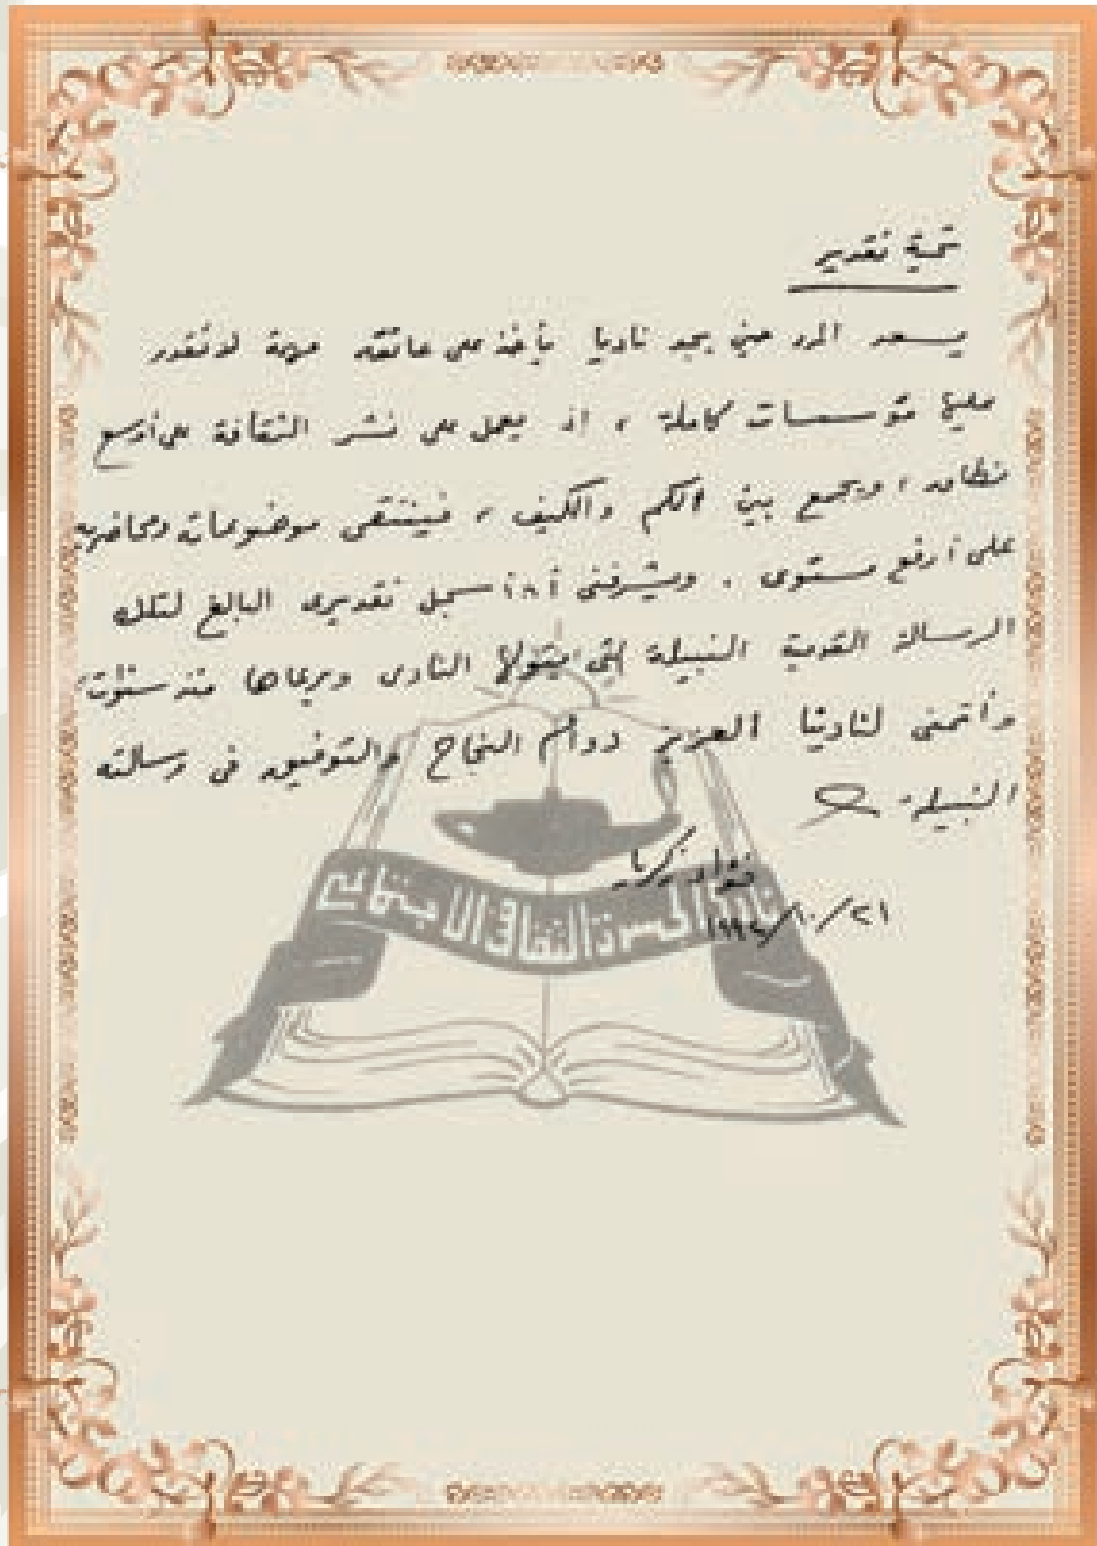 تحية تقدير
يسعد المرء حين يجد ناديا يأخذ على عاتقه مهمة لا تقدر
عليها مؤسسات كاملة ، إذ يعمل على نشر الثقافة على أوسع
نطاق ، ويجمع بين الكم والكيف ، فينتقى موضوعات ومحاضرين
على أرفع مستوى . ويشرفنى أن أسجل تقديرى البالغ لتلك
الرسالة القومية النبيلة التى يتولاها النادى ويرعاها منذ سنوات
وأتمنى لنادينا العزيز دوام النجاح والتوفيق فى رسالته
النبيلة
فؤاد زكريا
٢١/١٠/١٩٩٤
نادي الجسرة الثقافي الاجتماعي